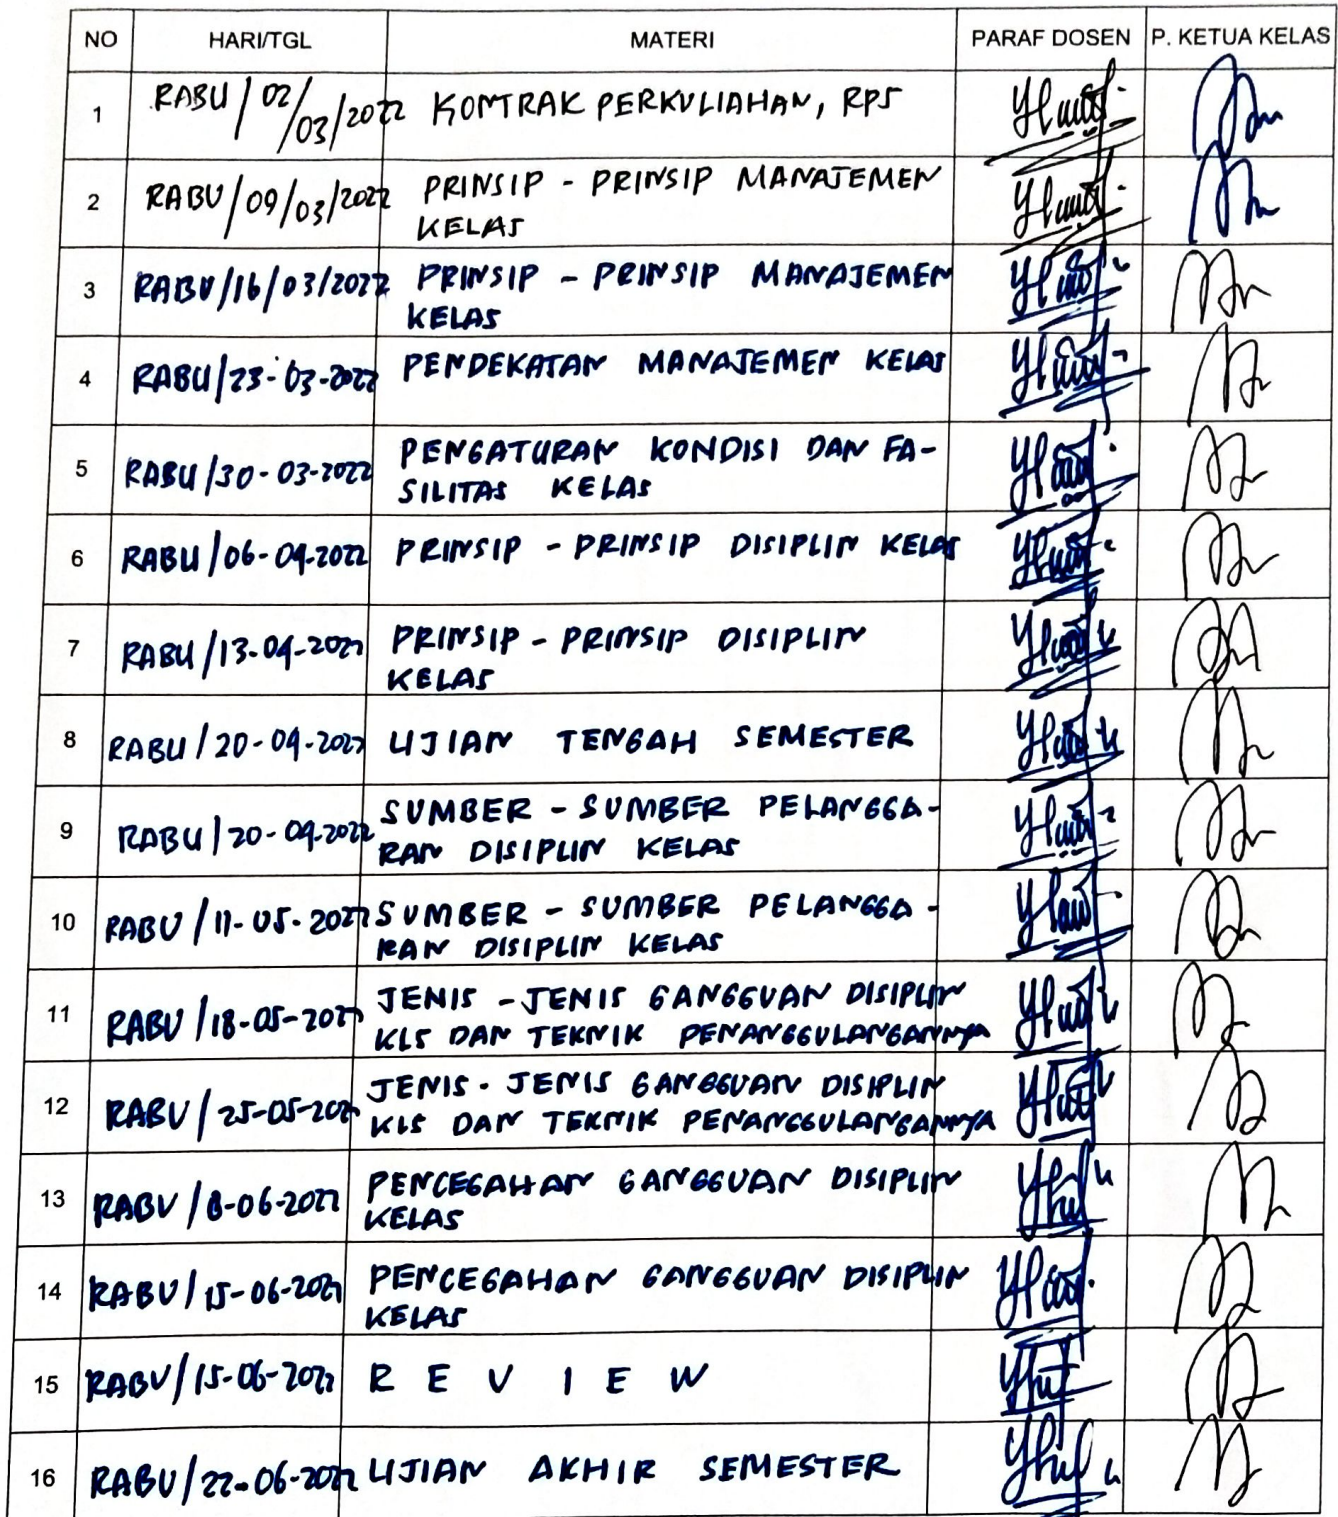 NO HARI/TGL MATERI PARAF DOSEN P. KETUA KELAS
1 RABU/02/03/2022 KONTRAK PERKULIAHAN, RPS
2 RABU/09/03/2022 PRINSIP - PRINSIP MANAJEMEN
KELAS
3 RABU/16/03/2022 PRINSIP - PRINSIP MANAJEMEN
KELAS
4 RABU/23-03-2022 PENDEKATAN MANAJEMEN KELAS
5 RABU/30-03-2022 PENGATURAN KONDISI DAN FA-
SILITAS KELAS
6 RABU/06-04-2022 PRINSIP - PRINSIP DISIPLIN KELAS
7 RABU/13-04-2022 PRINSIP - PRINSIP DISIPLIN
KELAS
8 RABU/20-04-2022 UJIAN TENGAH SEMESTER
9 RABU/20-04-2022 SUMBER - SUMBER PELANGGA-
RAN DISIPLIN KELAS
10 RABU/11-05-2022 SUMBER - SUMBER PELANGGA-
RAN DISIPLIN KELAS
11 RABU/18-05-2022 JENIS - JENIS GANGGUAN DISIPLIN
KLS DAN TEKNIK PENANGGULANGANNYA
12 RABU/25-05-2022 JENIS - JENIS GANGGUAN DISIPLIN
KLS DAN TEKNIK PENANGGULANGANNYA
13 RABU/8-06-2022 PENCEGAHAN GANGGUAN DISIPLIN
KELAS
14 RABU/15-06-2022 PENCEGAHAN GANGGUAN DISIPLIN
KELAS
15 RABU/15-06-2022 R E V I E W
16 RABU/22-06-2022 UJIAN AKHIR SEMESTER